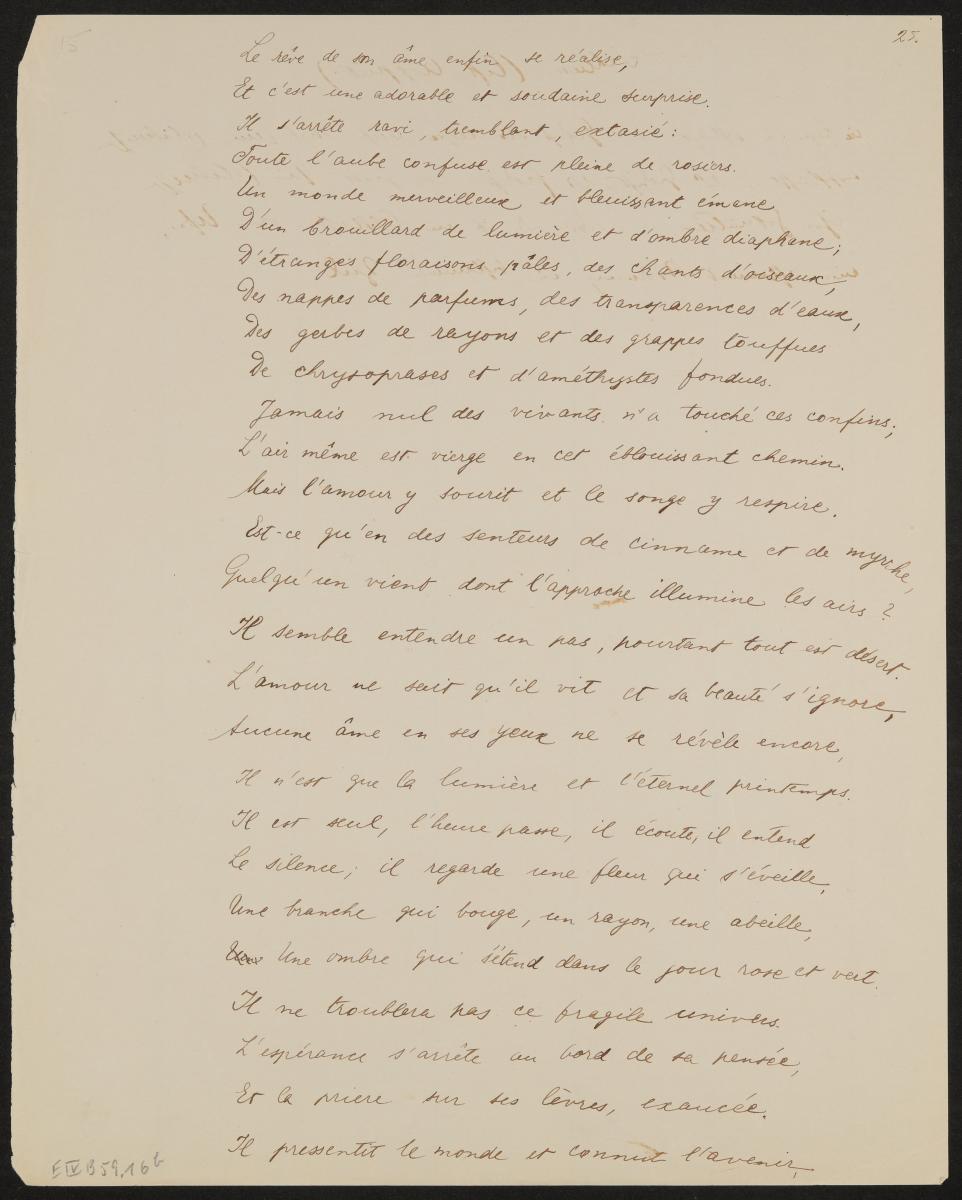 25.
15
Le rêve de son âme enfin se réalise,
Et c'est une adorable et soudaine surprise.
Il s'arrête ravi, tremblant, extasié :
Toute l'aube confuse est pleine de rosiers.
Un monde merveilleux et bleuissant émane
D'un brouillard de lumière et d'ombre diaphane ;
D'étranges floraisons pâles, des chants d'oiseaux,
Des nappes de parfums, des transparences d'eaux,
Des gerbes de rayons et des grappes touffues
De chrysoprases et d'améthystes fondues.
Jamais nul des vivants n'a touché ces confins ;
L'air même est vierge en cet éblouissant chemin.
Mais l'amour y sourit et le songe y respire.
Est-ce qu'en des senteurs de cinname et de myrrhe,
Quelqu'un vient dont l'approche illumine les airs ?
Il semble entendre un pas, pourtant tout est désert.
L'amour ne sait qu'il vit et sa beauté s'ignore,
Aucune âme en ses yeux ne se révèle encore,
Il n'est que la lumière et l'éternel printemps.
Il est seul, l'heure passe, il écoute, il entend
Le silence ; il regarde une fleur qui s'éveille,
Une branche qui bouge, un rayon, une abeille,
Une ombre qui s'étend dans le jour rose et vert.
Il ne troublera pas ce fragile univers.
L'espérance s'arrête au bord de sa pensée,
Et la prière sur ses lèvres, exaucée.
Il pressentit le monde et connut l'avenir,
E IV B 59, 16 b